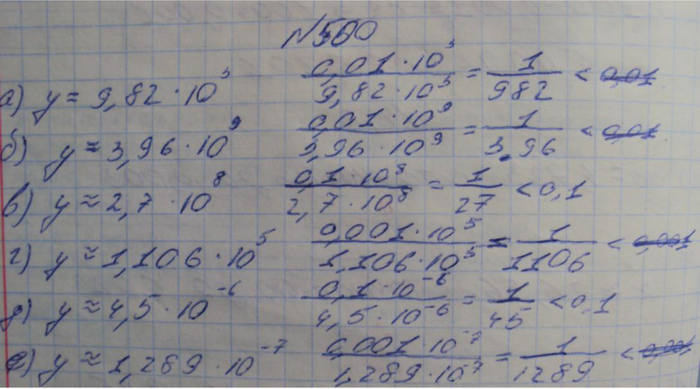 №500
а) y = 9,82 · 10³ (0,01 · 10³)/(9,82 · 10³) = 1/982 < 0,01
б) y ≈ 3,96 · 10⁹ (0,01 · 10⁹)/(3,96 · 10⁹) = 1/3.96 < 0,01
в) y ≈ 2,7 · 10⁸ (0,1 · 10⁸)/(2,7 · 10⁸) = 1/27 < 0,1
г) y ≈ 1,106 · 10⁵ (0,001 · 10⁵)/(1,106 · 10⁵) = 1/1106 < 0,001
д) y ≈ 4,5 · 10⁻⁶ (0,1 · 10⁻⁶)/(4,5 · 10⁻⁶) = 1/45 < 0,1
е) y ≈ 1,289 · 10⁻⁷ (0,001 10⁻⁷)/(1,289 · 10⁻⁷) = 1/1289 < 0,001